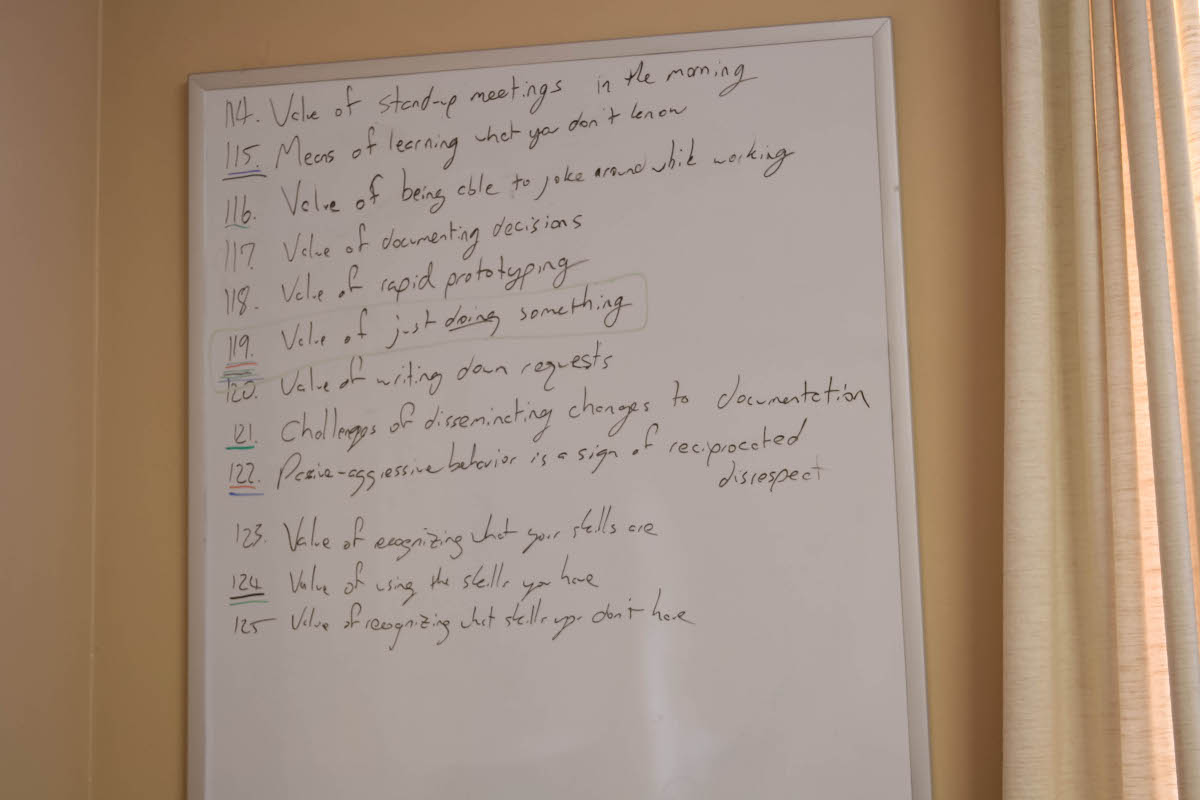 114. Value of stand-up meetings in the morning
115. Means of learning what you don't know
116. Value of being able to joke around while working
117. Value of documenting decisions
118. Value of rapid prototyping
119. Value of just doing something
120. Value of writing down requests
121. Challenges of disseminating changes to documentation
122. Passive-aggressive behavior is a sign of reciprocated
disrespect
123. Value of recognizing what your skills are
124 Value of using the skills you have
125 Value of recognizing what skills you don't have